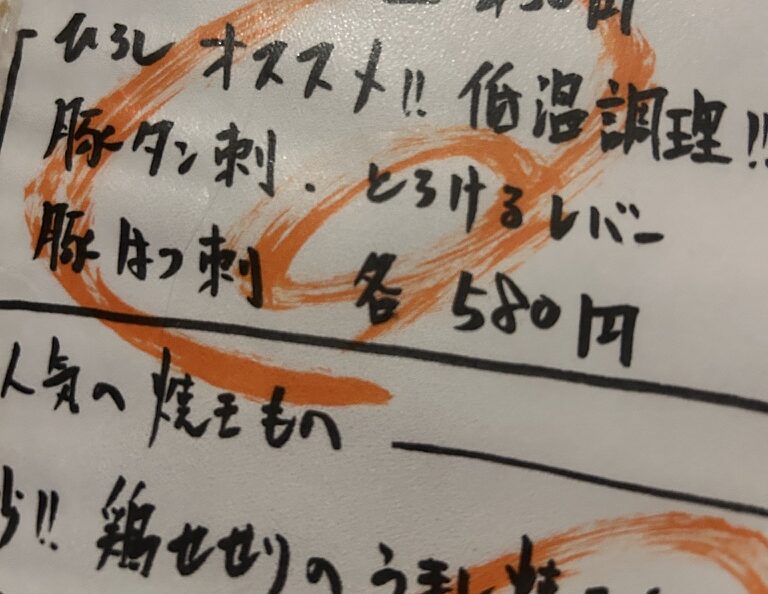 ひろしオススメ!! 低温調理!!
豚タン刺. とろけるレバー
豚はつ刺 各580円
人気の焼きもの
鶏せせりのうまし焼